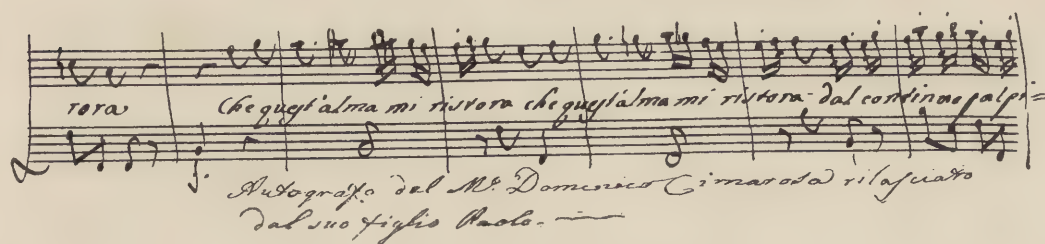 rora Che quest'alma mi ristora che quest'alma mi ristora dal continuo palpi=
Autografo del M.º Domenico Cimarosa rilasciato
dal suo figlio Paolo.